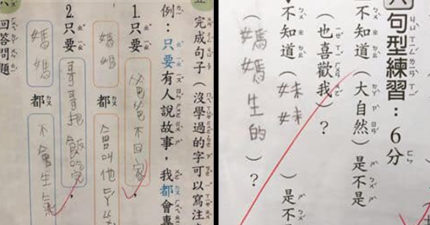 完成句子（沒學過的字可以寫注音
例：只要有人說故事，我都會專
1.只要爸爸不回家
媽媽都會叫他
2.只要哥哥把飯吃完
媽媽都不會生氣
回答問題
句型練習：6分
不知道（大自然）是不是
（也喜歡我）？
不知道（妹妹）是不是
（媽媽生的）？